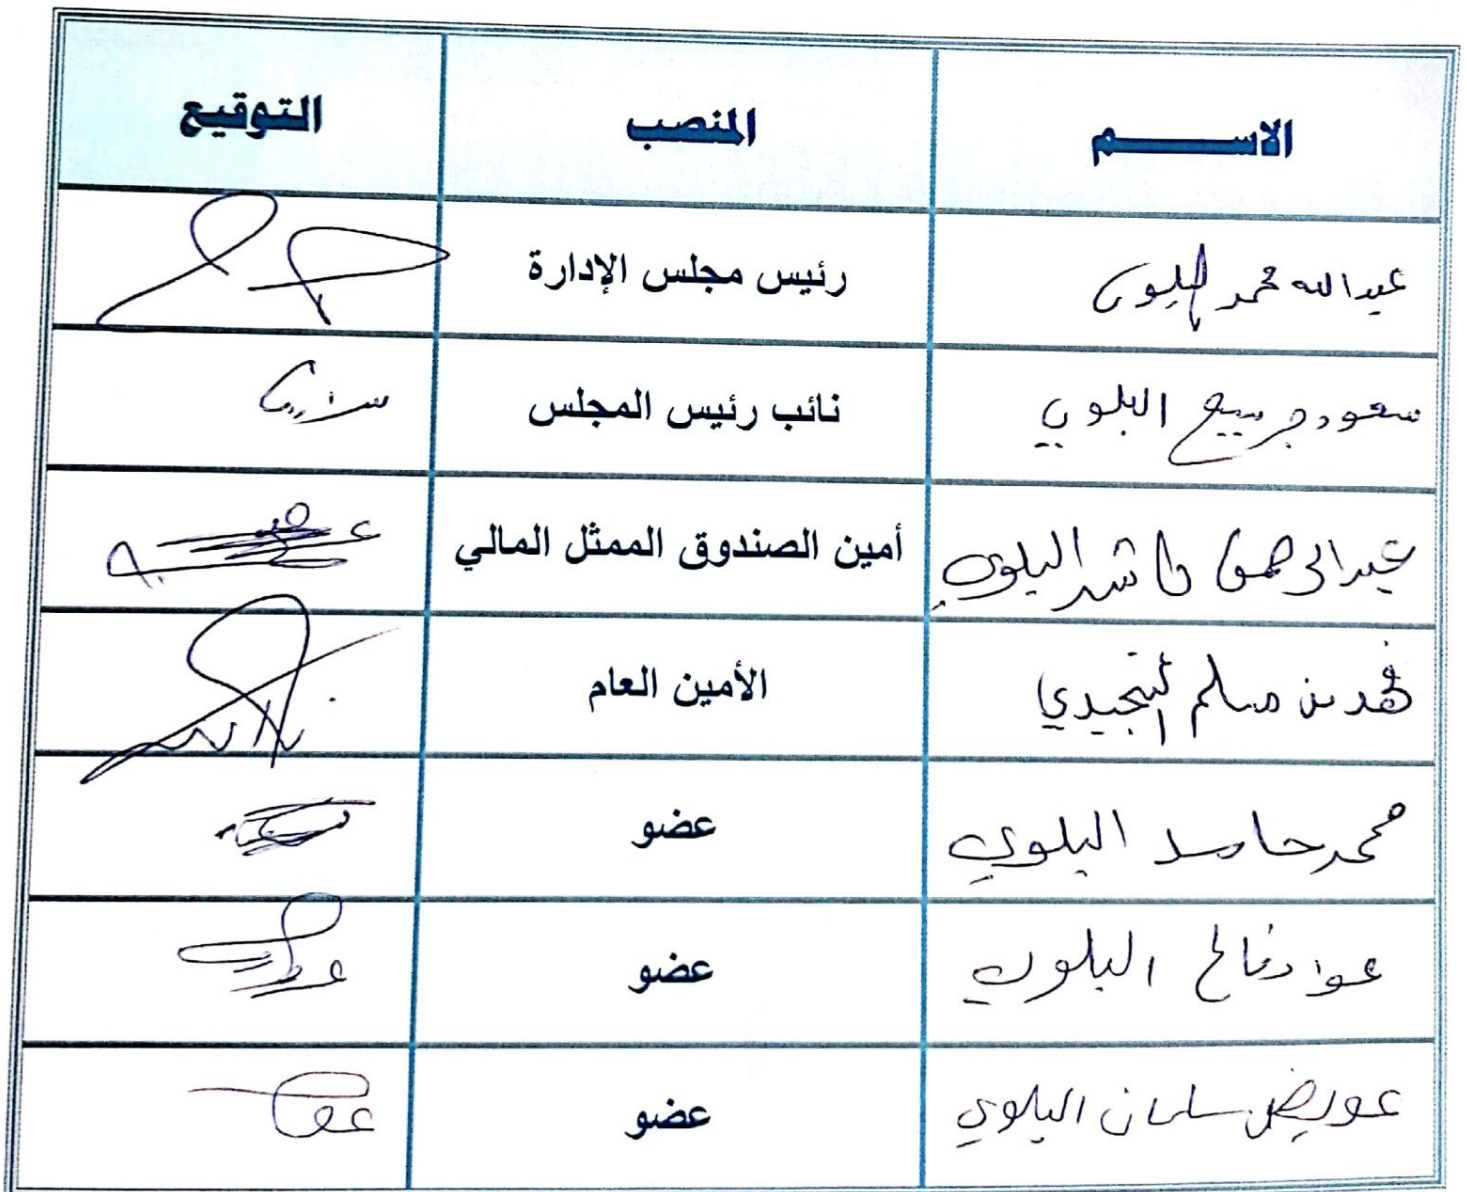 الاسم المنصب التوقيع
عبدالله محمد البلوي رئيس مجلس الإدارة
سعود جريبيع البلوي نائب رئيس المجلس
عبدالرحمن البلوي أمين الصندوق الممثل المالي
فهد بن مسلم النجيدي الأمين العام
محمد حامد البلوي عضو
عواد فالح البلوي عضو
عويض سلمان البلوي عضو